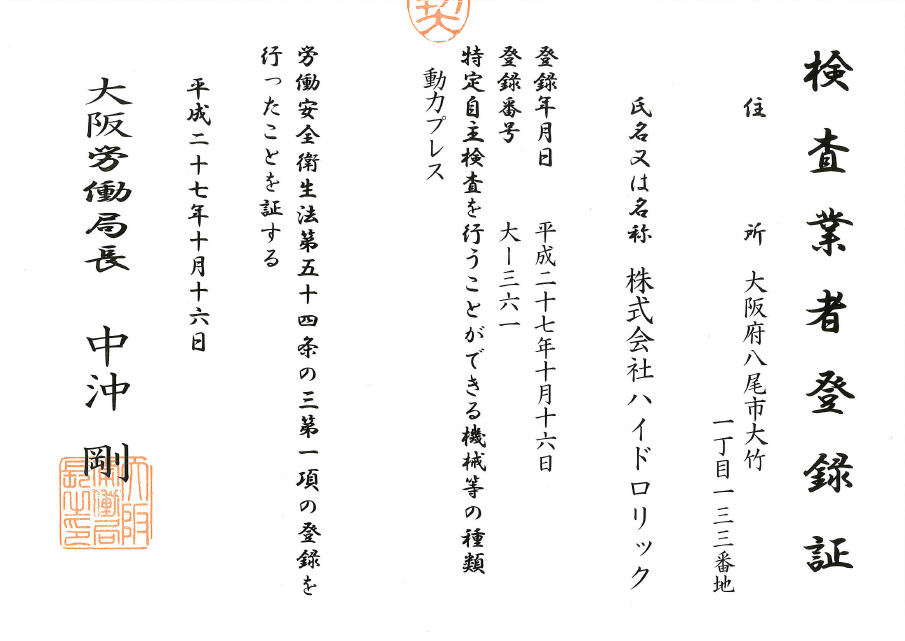 検査業者登録証
住所 大阪府八尾市大竹
一丁目一三三番地
氏名又は名称 株式会社ハイドロリック
登録年月日 平成二十七年十月十六日
登録番号 大ー三六一
特定自主検査を行うことができる機械等の種類
動力プレス
労働安全衛生法第五十四条の三第一項の登録を
行ったことを証する
平成二十七年十月十六日
大阪労働局長 中沖 剛
大阪
労働局
長之印
契